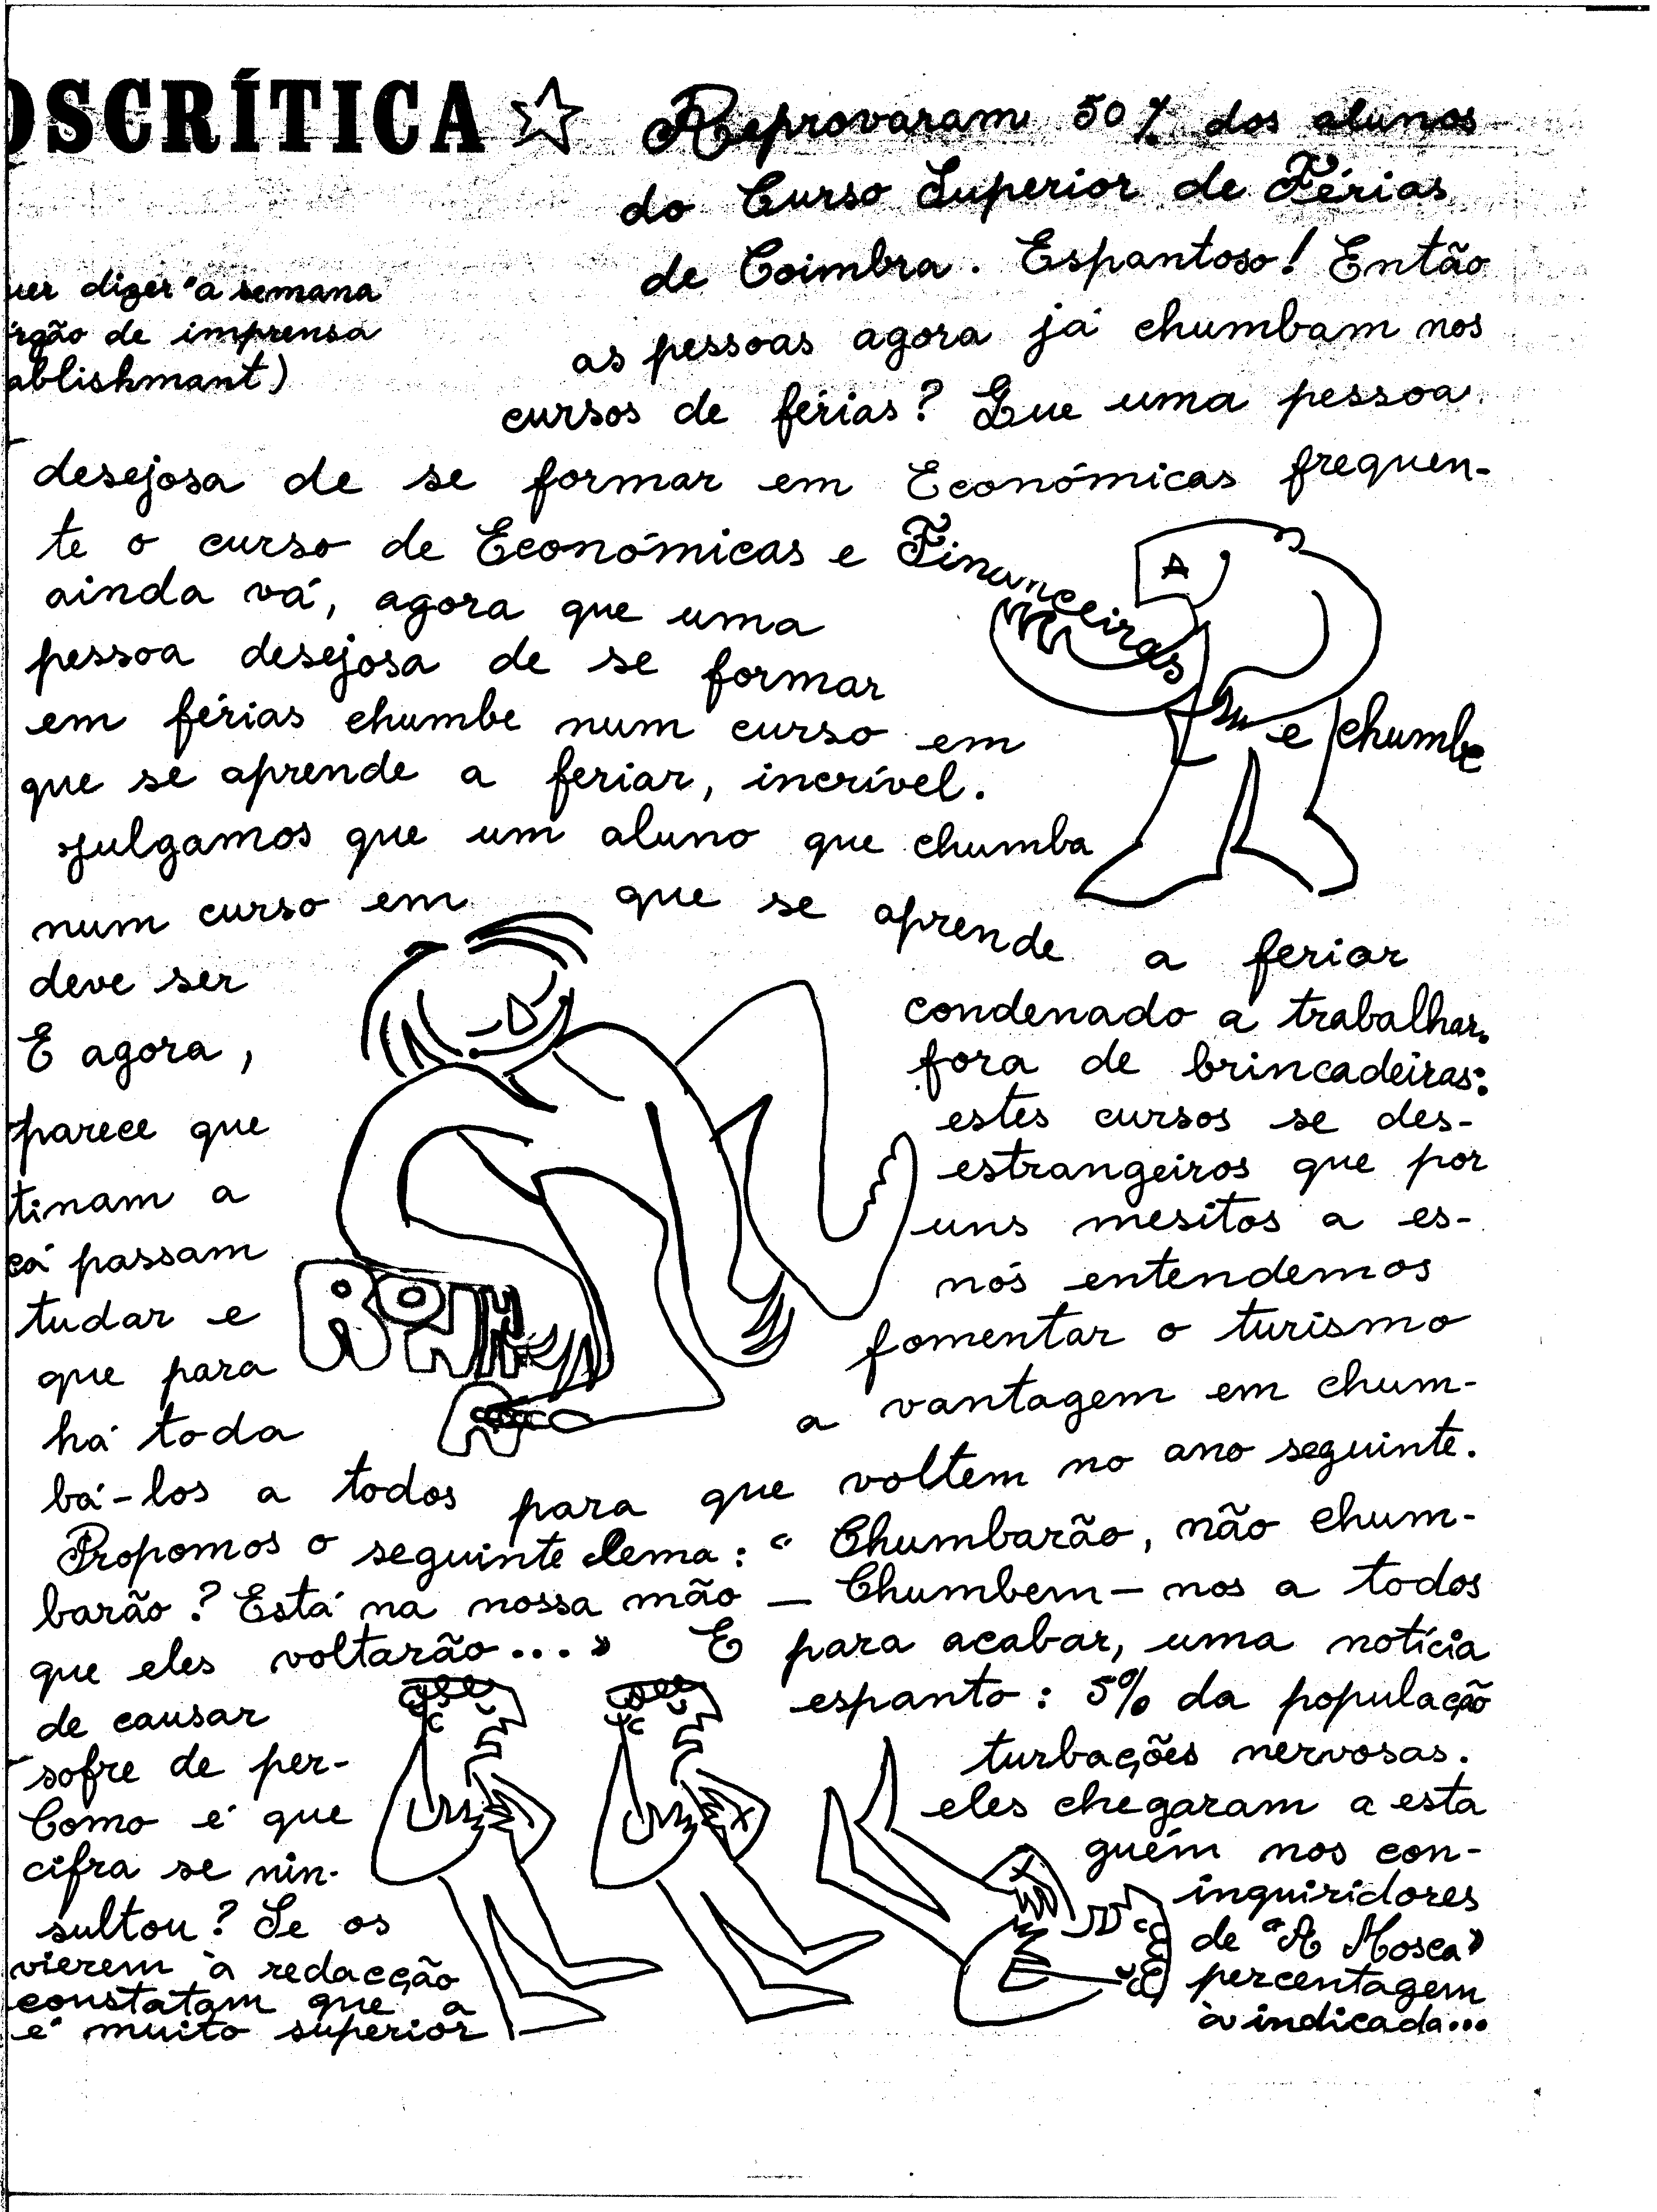 OSCRÍTICA ☆
uer dizer "a semana
rgão de imprensa
ablishmant)
Reprovaram 50% dos alunos
do Curso Superior de Férias
de Coimbra. Espantoso! Então
as pessoas agora já chumbam nos
cursos de férias? Que uma pessoa
desejosa de se formar em Económicas frequen-
te o curso de Económicas e Financeiras e chumbe
ainda vá, agora que uma
pessoa desejosa de se formar
em férias chumbe num curso em
que se aprende a feriar, incrível.
Julgamos que um aluno que chumba
num curso em que se aprende a feriar
deve ser condenado a trabalhar.
E agora, fora de brincadeiras:
parece que estes cursos se des-
tinam a estrangeiros que por
cá passam uns mesitos a es-
tudar e nós entendemos
que para fomentar o turismo
há toda a vantagem em chum-
bá-los a todos para que voltem no ano seguinte.
Propomos o seguinte lema: "Chumbarão, não chum-
barão? Está na nossa mão — Chumbem-nos a todos
que eles voltarão..." E para acabar, uma notícia
de causar espanto: 5% da população
sofre de per- turbações nervosas.
Como é que eles chegaram a esta
cifra se nin- guém nos con-
sultou? Se os inquiridores
vierem à redacção de "A Mosca"
constatam que a percentagem
é muito superior à indicada...